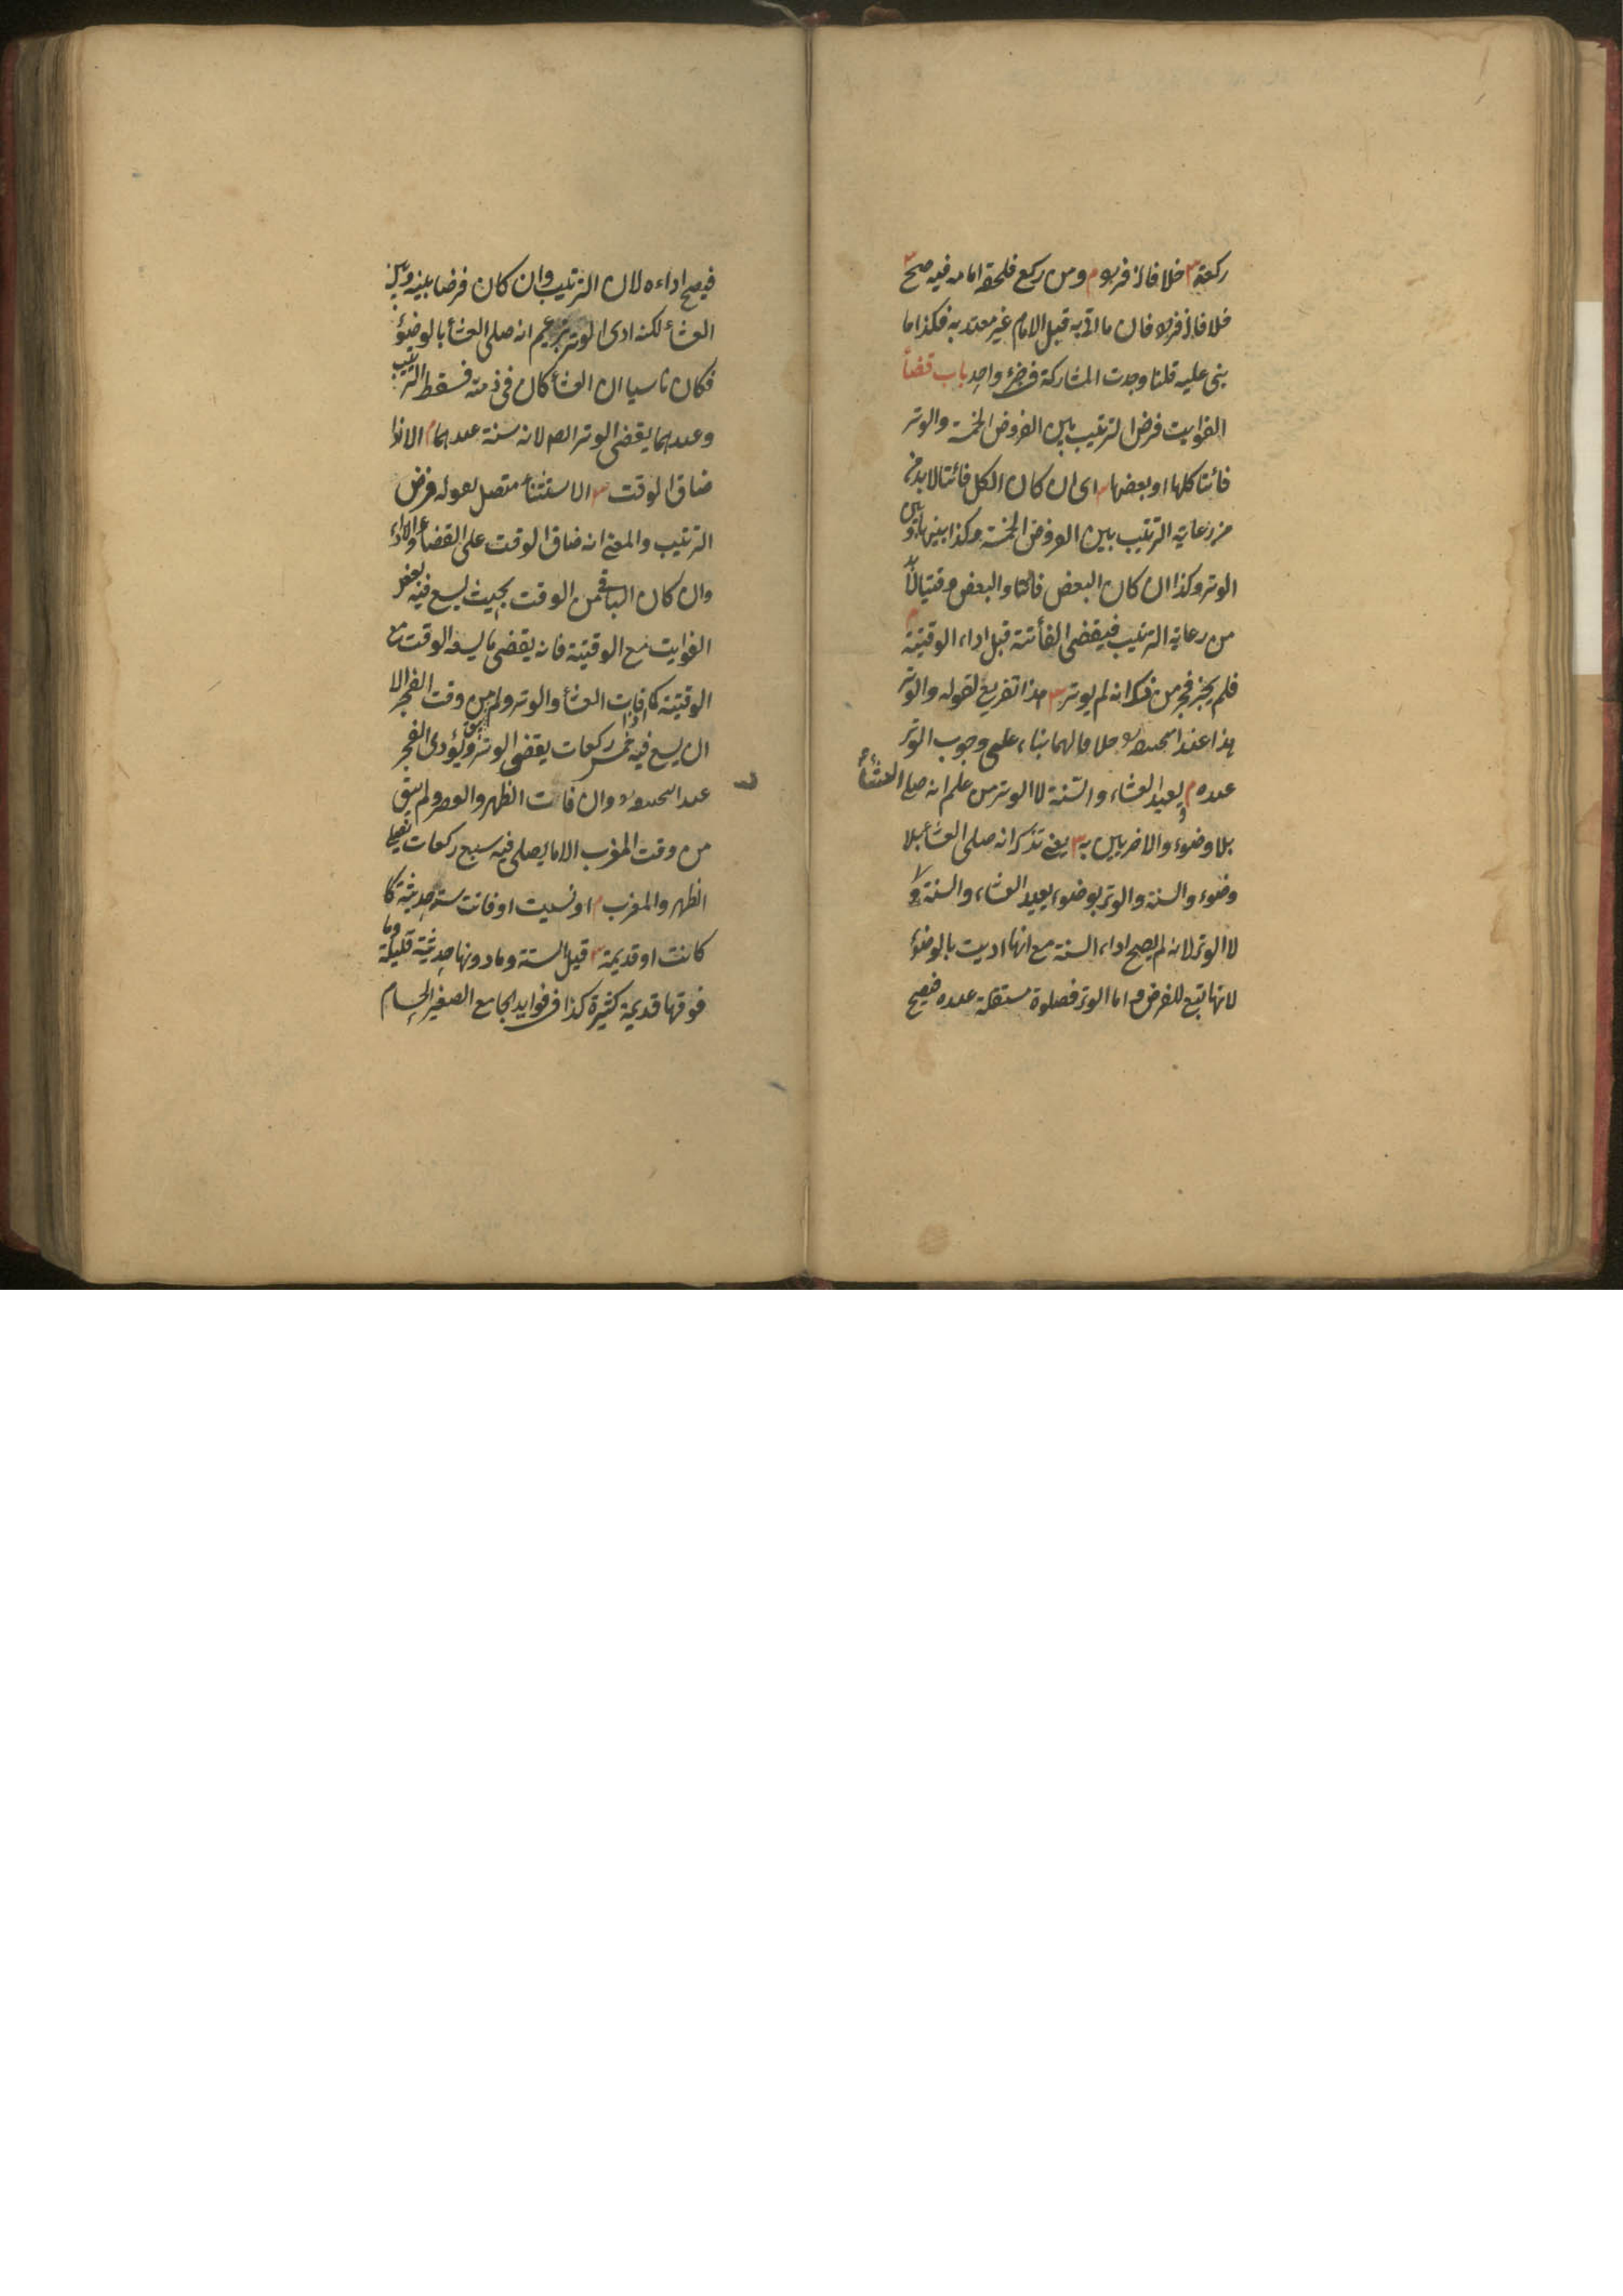 ركعة خلافا لزفر م ومن ركع فلحقه امامه فيه صح
خلافا لزفر فان ما اتى به قبل الامام غير معتد به فكذا ما
بنى عليه قلنا وجدت المشاركة فى جزء واحد باب قضأ
الفوايت فرض الترتيب بين الفروض الخمسة والوتر
فائتا كلها او بعضها اى ان كان الكل فائتا لا بد
من رعاية الترتيب بين الفروض الخمسة وكذا بينها وبين
الوتر وكذا ان كان البعض فائتا والبعض وقتيا لا بد
من رعاية الترتيب فيقضى الفأئتة قبل اداء الوقتية م
فلم يجز فجر من ذكر انه لم يوتر هذا تفريع لقوله والوتر
هذا عند خلافا لهما بناء على وجوب الوتر
عنده م ويعيد العشاء والسنة لا الوتر من علم انه صلى العشأ
بلا وضوء والاخريين به يعنى تذكر انه صلى العشأ بلا
وضوء والسنة والوتر بوضوء يعيد العشاء والسنة
لا الوتر لانه لم يصح اداء السنة مع انها اديت بالوضوء
لانها تبع للفرض و اما الوتر فصلوة مستقلة عنده فيصح
فيصح اداءه لان الترتيب وان كان فرضا بينه وبين
العشأ لكنه ادى الوتر بزعم انه صلى العشأ بالوضوء
فكان ناسيا ان العشأ كان فى ذمته فسقط الترتيب
وعندهما يقضى الوتر ايضا لانه سنة عندهما م الا اذا
ضاق الوقت الاستثناء متصل بقوله فرض
الترتيب والمعنى انه ضاق الوقت على القضاء والاداء
وان كان الباقى من الوقت بحيث يسع فيه بعض
الفوايت مع الوقتية فانه يقضى ما يسعه الوقت مع
الوقتية كما اذا فات العشأ والوتر ولم يبق من وقت الفجر الا
ان يسع فيه خمس ركعات يقضى الوتر ويؤدى الفجر
عند وان فاتت الظهر والعصر ولم يبق
من وقت المغرب الا ما يصلى فيه سبع ركعات يصلى
الظهر والمغرب م او نسيت او فاتت ستة حديثة
كانت او قديمة قيل الستة وما دونها حديثة قليلة وما
فوقها قديمة كثيرة كذا فى فوايد الجامع الصغير الحسام